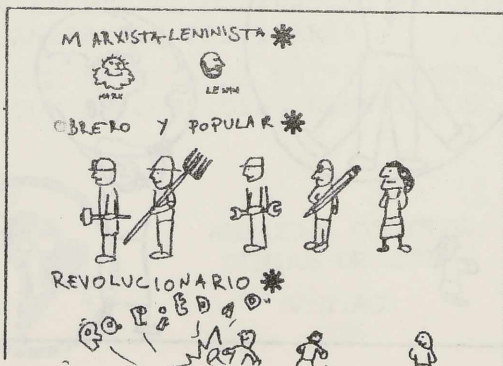 MARXISTA-LENINISTA
MARX LENIN
OBRERO Y POPULAR
REVOLUCIONARIO